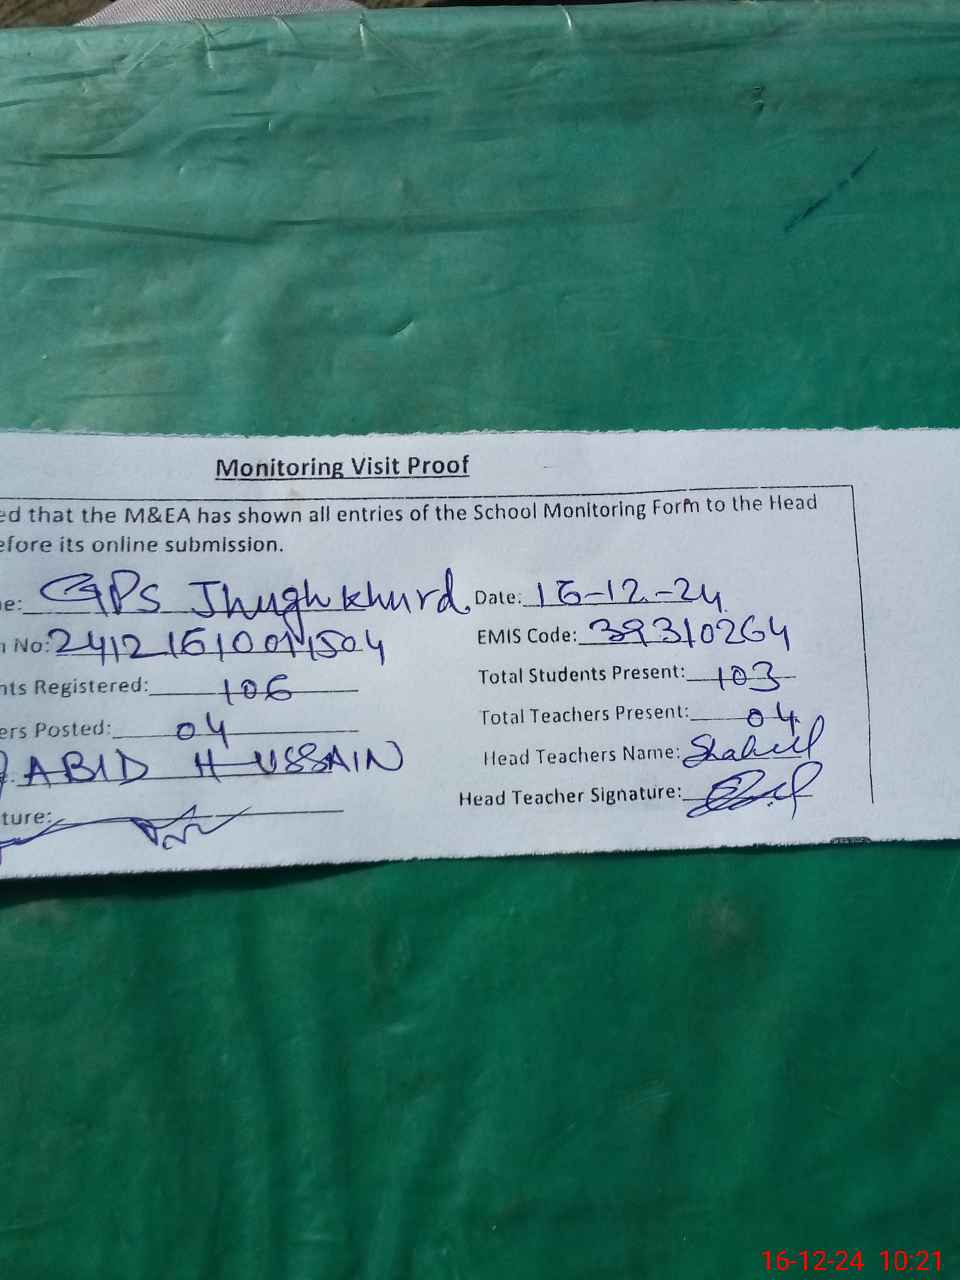 Monitoring Visit Proof
ed that the M&EA has shown all entries of the School Monitoring Form to the Head
efore its online submission.
e: GPS Jhugh khurd. Date: 16-12-24
n No: EMIS Code: 39310264
nts Registered: 106 Total Students Present: 103
ers Posted: 04 Total Teachers Present: 04
ABID HUSSAIN Head Teachers Name:
ture: Head Teacher Signature:
16-12-24 10:21